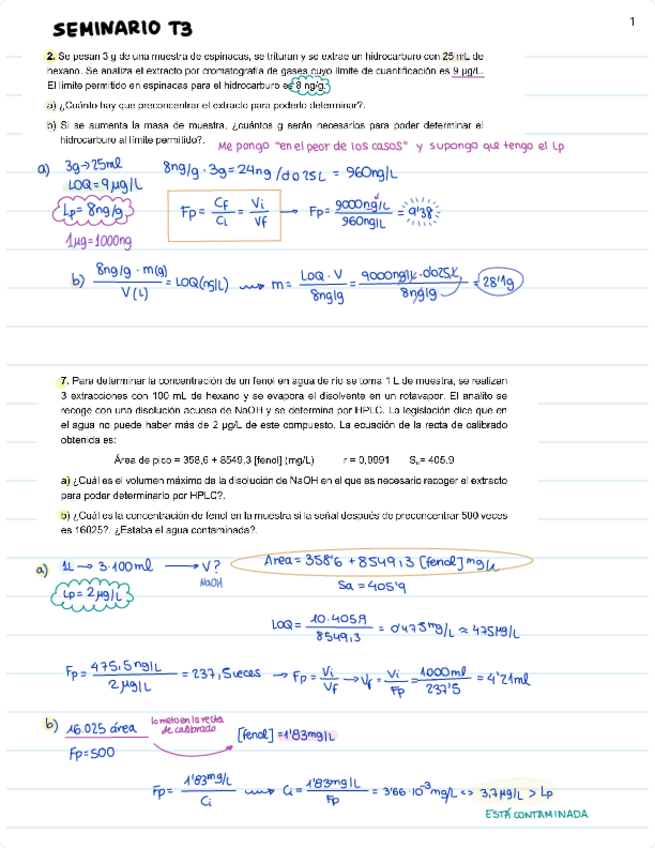 1
SEMINARIO T3
2. Se pesan 3 g de una muestra de espinacas, se trituran y se extrae un hidrocarburo con 25 mL de
hexano. Se analiza el extracto por cromatografía de gases cuyo límite de cuantificación es 9 µg/L.
El límite permitido en espinacas para el hidrocarburo es 8 ng/g.
a) ¿Cuánto hay que preconcentrar el extracto para poderlo determinar?.
b) Si se aumenta la masa de muestra, ¿cuántos g serán necesarios para poder determinar el
hidrocarburo al límite permitido?.
Me pongo "en el peor de los casos" y supongo que tengo el Lp
a) 3g→25ml
LOQ=9µg/L
Lp=8ng/g
1µg=1000ng
8ng/g·3g=24ng/0'025L = 960ng/L
Fp = Cf/Ci = Vi/Vf → Fp = 9000ng/L / 960ng/L = 9'38
b) 8ng/g · m(g) / V(L) = LOQ(ng/L) → m = LOQ·V / 8ng/g = 9000ng/L·0'025L / 8ng/g = 28'1g
7. Para determinar la concentración de un fenol en agua de río se toma 1 L de muestra, se realizan
3 extracciones con 100 mL de hexano y se evapora el disolvente en un rotavapor. El analito se
recoge con una disolución acuosa de NaOH y se determina por HPLC. La legislación dice que en
el agua no puede haber más de 2 µg/L de este compuesto. La ecuación de la recta de calibrado
obtenida es:
Área de pico = 358,6 + 8549,3 [fenol] (mg/L) r = 0,9991 Sa= 405.9
a) ¿Cuál es el volumen máximo de la disolución de NaOH en el que es necesario recoger el extracto
para poder determinarlo por HPLC?.
b) ¿Cuál es la concentración de fenol en la muestra si la señal después de preconcentrar 500 veces
es 16025?. ¿Estaba el agua contaminada?.
a) 1L → 3·100ml → V? NaOH
Lp=2µg/L
Area = 358'6 + 8549,3 [fenol] mg/L
Sa = 405'9
LOQ = 10·405,9 / 8549,3 = 0'475mg/L ≈ 475µg/L
Fp = 475,5ng/L / 2µg/L = 237,5veces → Fp = Vi/Vf → Vf = Vi/Fp = 1000ml / 237'5 = 4'21ml
b) 16.025 área
Fp=500
lo meto en la recta de calibrado
[fenol] =1'83mg/L
Fp = 1'83mg/L / Ci → Ci = 1'83mg/L / Fp = 3'66·10⁻³mg/L <=> 3,7µg/L > Lp
ESTÁ CONTAMINADA